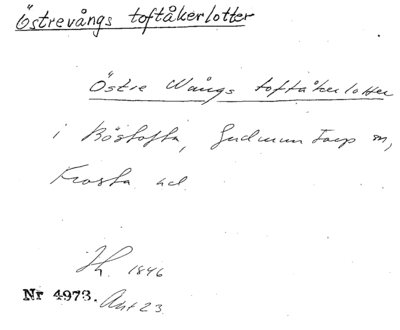 Östrevångs toftåkerlotter
Östre Wångs toftåkerlotter
i Böstofta, Gudmuntorp sn,
Frosta hd
Lh. 1846
Nr 4973. Akt 23